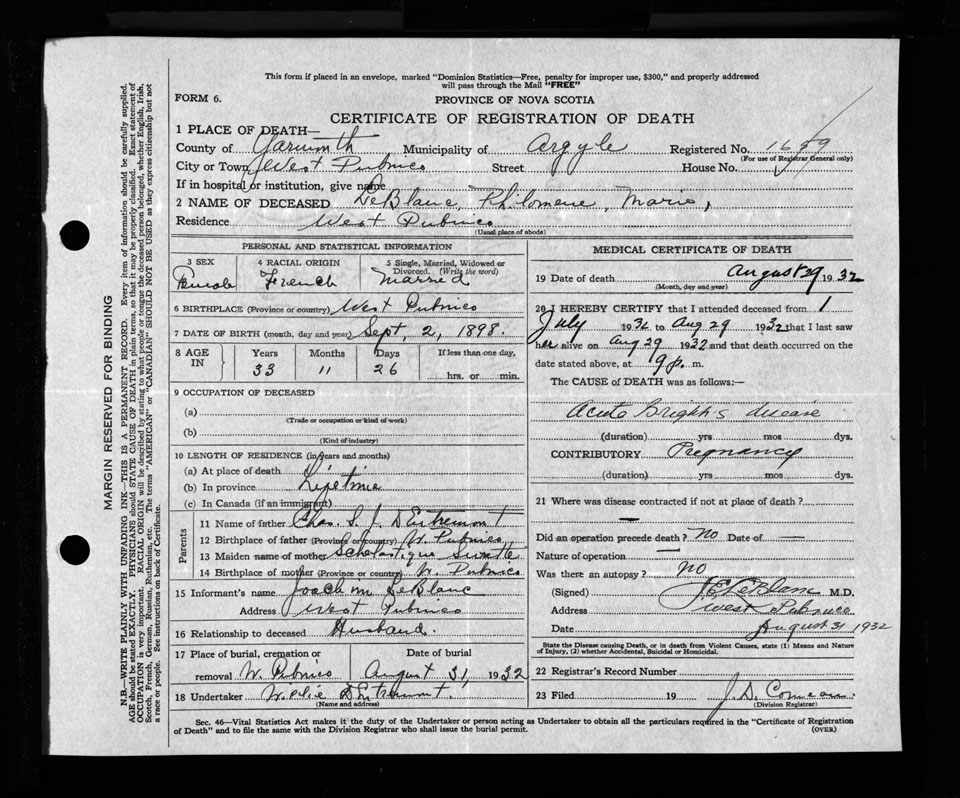 This form if placed in an envelope, marked "Dominion Statistics—Free, penalty for improper use, $300," and properly addressed
will pass through the Mail "FREE"
FORM 6.
PROVINCE OF NOVA SCOTIA
CERTIFICATE OF REGISTRATION OF DEATH
1 PLACE OF DEATH—
County of Yarmouth Municipality of Argyle Registered No. 1659
(For use of Registrar General only)
City or Town West Pubnico Street House No.
If in hospital or institution, give name
2 NAME OF DECEASED LeBlanc, Philomene, Marie,
Residence West Pubnico
(Usual place of abode)
PERSONAL AND STATISTICAL INFORMATION
3 SEX 4 RACIAL ORIGIN 5 Single, Married, Widowed or
Divorced. (Write the word)
Female French Married
6 BIRTHPLACE (Province or country) West Pubnico
7 DATE OF BIRTH (month, day and year) Sept, 2, 1898.
8 AGE IN Years Months Days If less than one day,
33 11 26 hrs. or min.
9 OCCUPATION OF DECEASED
(a)
(Trade or occupation or kind of work)
(b)
(Kind of industry)
10 LENGTH OF RESIDENCE (in years and months)
(a) At place of death
(b) In province Lifetime
(c) In Canada (if an immigrant)
Parents
11 Name of father Chas. S. J. D'Entremont
12 Birthplace of father (Province or country) W. Pubnico
13 Maiden name of mother Scholastique Surette
14 Birthplace of mother (Province or country) W. Pubnico
15 Informant's name Joachim LeBlanc
Address West Pubnico
16 Relationship to deceased Husband.
17 Place of burial, cremation or removal Date of burial
W. Pubnico August 31, 1932
18 Undertaker Willie D'Entremont
(Name and address)
MEDICAL CERTIFICATE OF DEATH
19 Date of death August 29 1932
(Month, day and year)
20 I HEREBY CERTIFY that I attended deceased from 1
July 1932 to Aug 29 1932 that I last saw
her alive on Aug 29 1932 and that death occurred on the
date stated above, at 9 p. m.
The CAUSE of DEATH was as follows:—
Acute Bright's disease
(duration) yrs mos dys.
CONTRIBUTORY Pregnancy
(duration) yrs mos dys.
21 Where was disease contracted if not at place of death?
—
Did an operation precede death? No Date of —
Nature of operation —
Was there an autopsy? No
(Signed) J.E. LeBlanc M.D.
Address West Pubnico
Date August 31 1932
State the Disease causing Death, or in death from Violent Causes, state (1) Means and
Nature of Injury, (2) whether Accidental, Suicidal or Homicidal.
22 Registrar's Record Number
23 Filed 19 J. D. Comeau
(Division Registrar)
Sec. 46—Vital Statistics Act makes it the duty of the Undertaker or person acting as Undertaker to obtain all the particulars required in the "Certificate of Registration
of Death" and to file the same with the Division Registrar who shall issue the burial permit. (OVER)
MARGIN RESERVED FOR BINDING
N.B.—WRITE PLAINLY WITH UNFADING INK—THIS IS A PERMANENT RECORD. Every item of information should be carefully supplied.
AGE should be stated EXACTLY. PHYSICIANS should STATE CAUSE OF DEATH in plain terms, so that it may be properly classified. Exact statement of
OCCUPATION is very important. RACIAL ORIGIN will be described by stating to what people or tongue the deceased person belonged, whether English, Irish,
Scotch, French, German, Russian, Ruthenian, etc. The terms "AMERICAN" or "CANADIAN" SHOULD NOT BE USED as they express citizenship but not
a race or people. See instructions on back of Certificate.